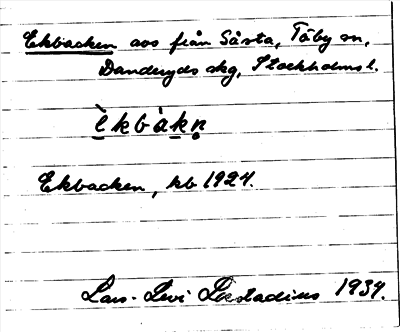 Ekbacken avs från Såsta, Täby sn,
Danderyds skg, Stockholms l.
è̱kbàḵṇ
Ekbacken, kb 1924.
Lars-Levi Læstadius 1934.